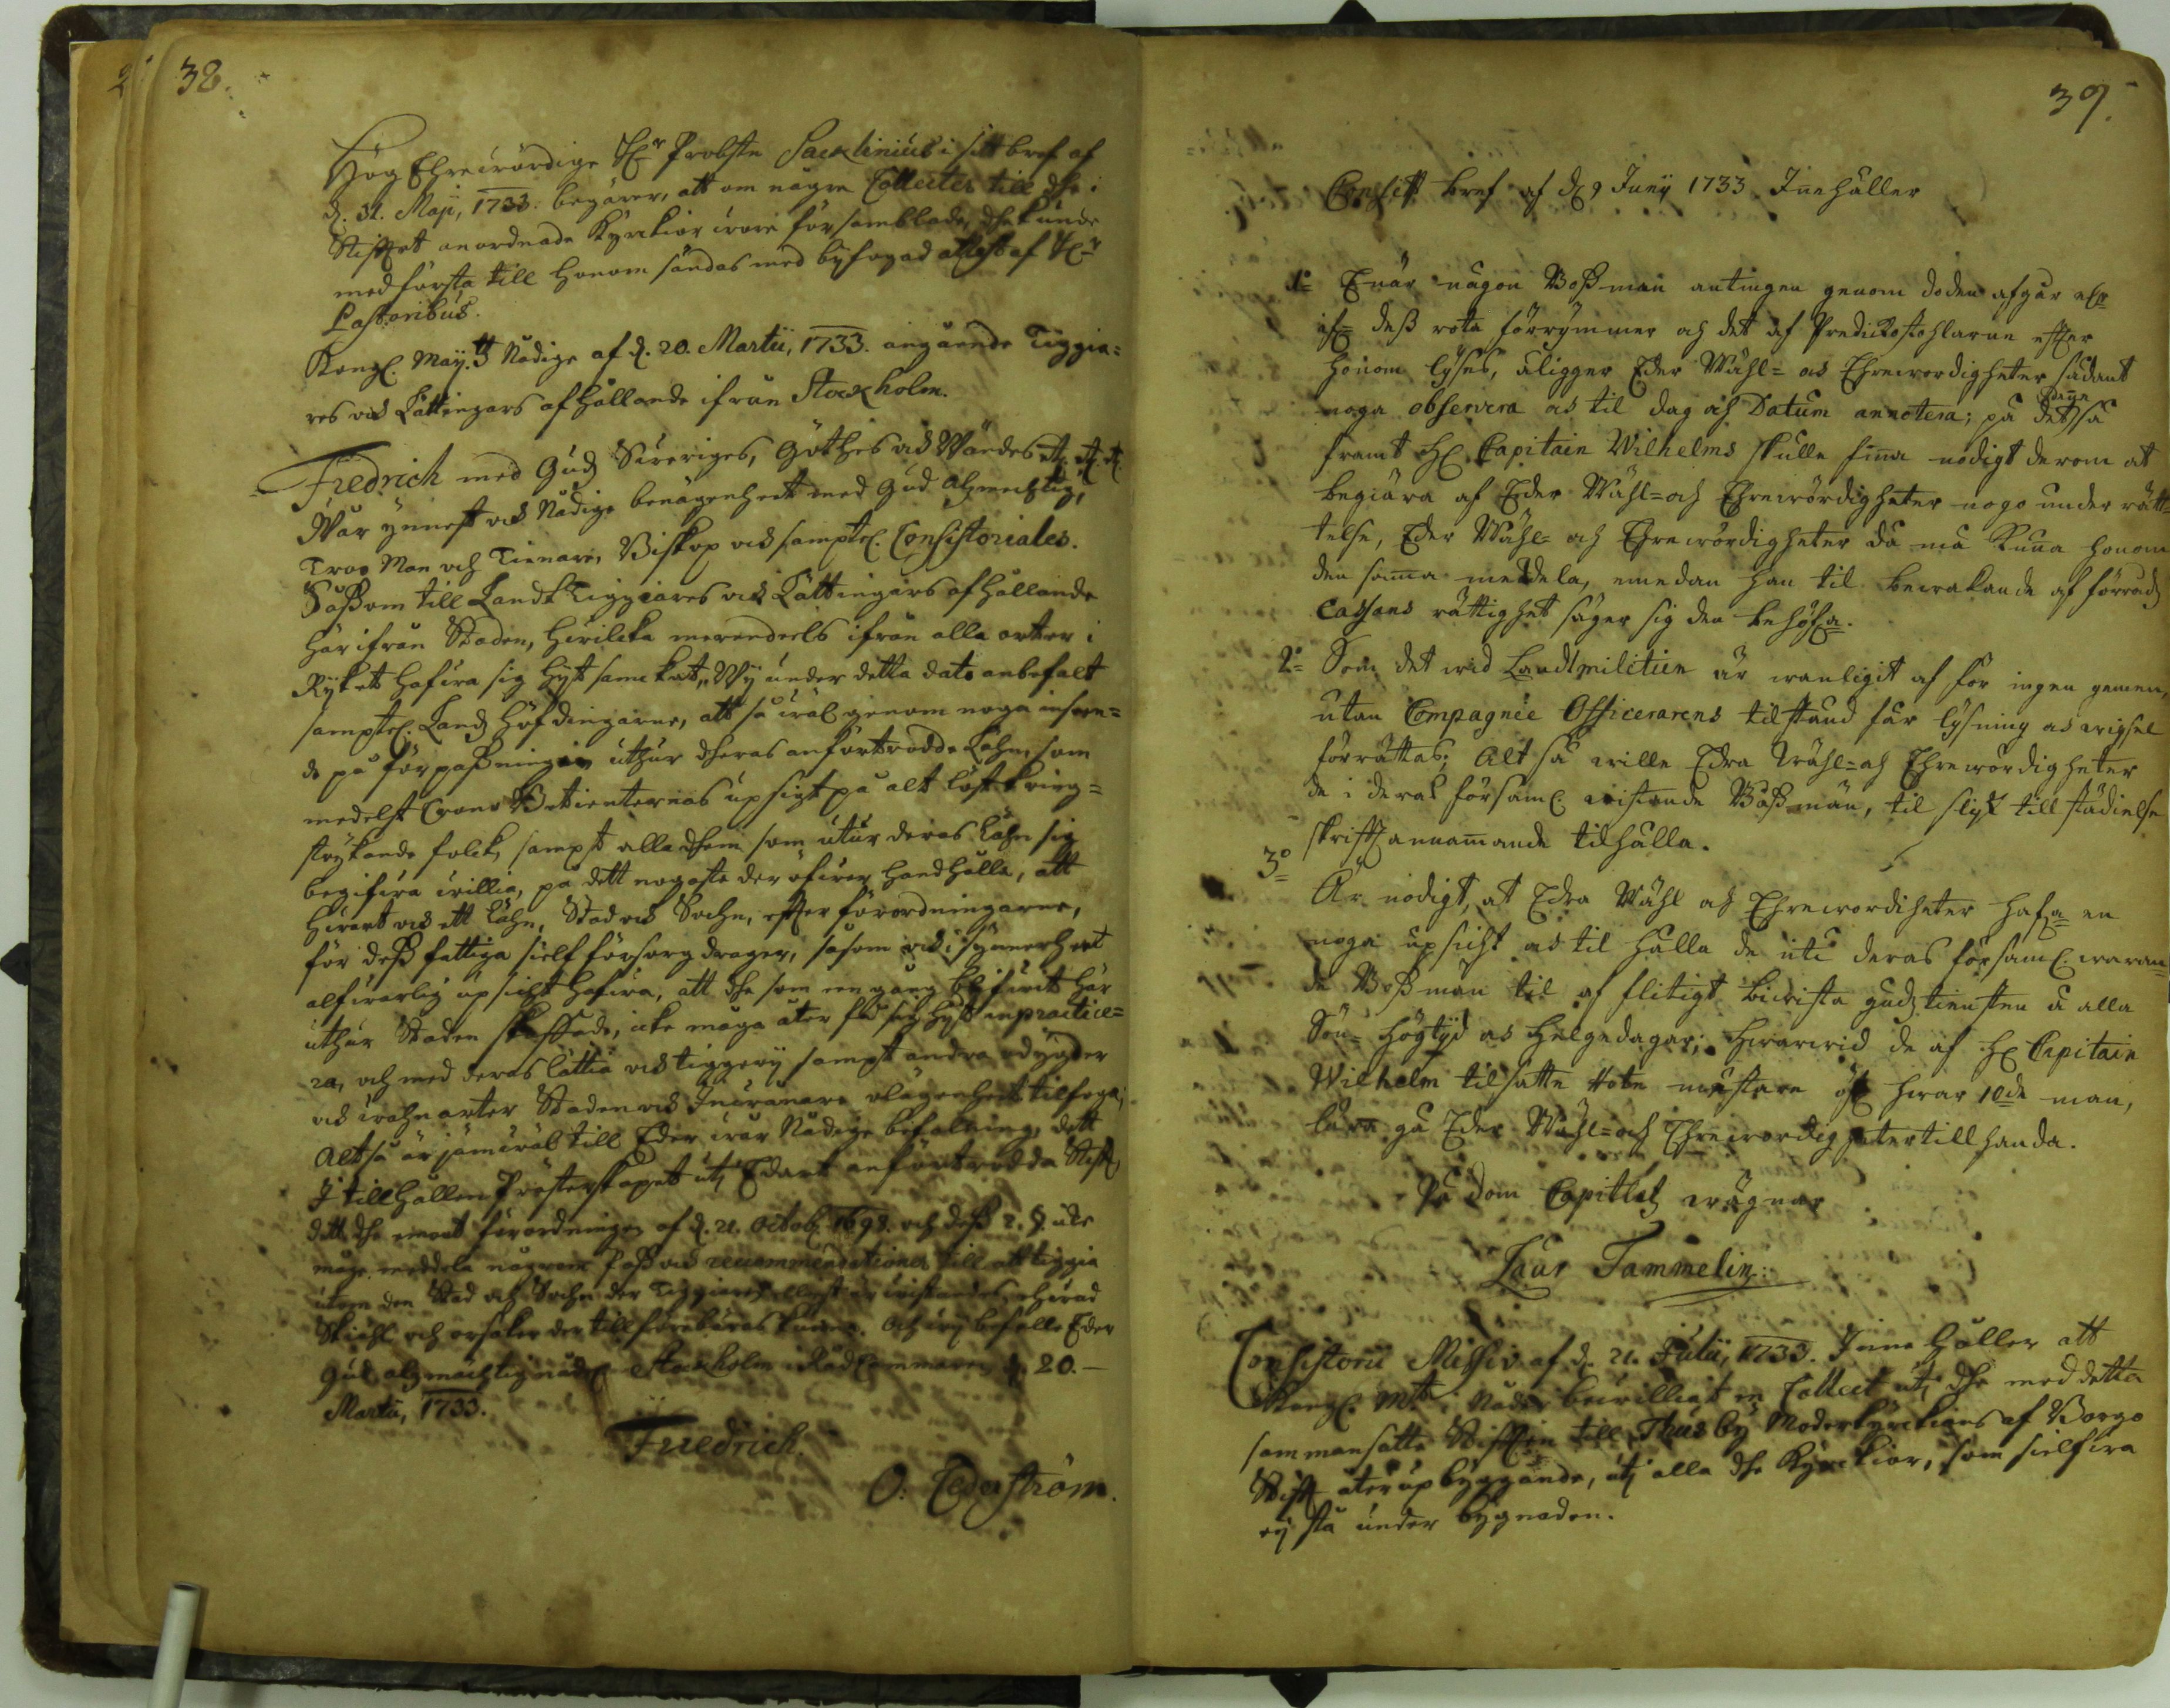 38.
Hög Ehrewördige H:r Probsten Sacklinius i sitt bref af
d. 31. Maji, 1733. begärer, att om några Collecter till dhe i
Stifftet anordnade Kyrckior wore församblade, dhe kunde
med första till honom sändas med byfogad attest af H:r
Pastoribus.
Kongl. May:tt Nådige af d. 20. Martii, 1733. angående Tiggia=
res och Lättingars afhållande ifrån Stockholm.
Fredrich med Gudz Sweriges, Göthes och Wändes etc. etc. etc.
Wår ynnest och Nådige benägenhet med Gud Alzmechtig,
Troo Man och Tienare, Biskop och samptel. Consistoriales.
Såssom till Landt Tiggiares och Lättingars afhållande
här ifrån Staden, hwilcka merendeels ifrån alla orter i
Ryket hafwa sig hyt samckat, Wy under detta dato anbefalt
samptel. Landz Höfdingarne, att så wäl genom noga inseen=
de på förpassningen uthur dheras anförtrodde Lähn, som
medelst Crono Betienternas upsigt på alt löst kring=
strykande folck, sampt alla dhem som utur deras Lähn sig
begifwa willia, på dett nogaste der öfwer handhålla, att
hwart och ett Lähn, Stad och Sochn, effter förordningarne,
för dess fattiga sielf försorg drager, såsom och i synnerhet
alfwarlig upsicht hafwa, att dhe som een gång blifwit här
uthur Staden skaffade, icke måga åter få sig hyt inpractice=
ra, och med deras lättia och tiggery sampt andra odygder
och wahnarter Staden och Inwånare olägenhet tilfoga;
Altså är jämwäl till Eder wår Nådige befalning, dett
I tillhållen Prästerskapet uti Edert anförtrodda Stifft,
dett dhe emot förordningen af d. 21. Octob. 1698. och dess 2. § icke
måge meddela någrom Pass och recommendationer till att tiggia
utom den Stad och Sochn der Tiggiaren ellest är wistandes, ehwad
Skiähl och orsaker der till förebäras kunna. Och wy befalle Eder
Gud alzmächtig nådel. Stockholm i Råd Cammaren d. 20.
Martii, 1733.
Friedrich.
O: Cederström.
39.
Consist: bref af d 9 Junij 1733 Innehåller
1:o Enär någon Bossman antingen genom döden afgår eller
af dess rota förrymmer och det af Predickostohlarne effter
honom lyses, åligger Eder Wähl= och Ehrewördigheter sådant
noga observera och til dag och Datum annotera; på det
framt H Capitain Wilhelms skulle finna nödigt derom at
begiära af Eder Wähl= och Ehrewördigheter nogo under rätt=
telse, Eder Wähl= och Ehrewördigheter då må kunna honom
den samma meddela, emedan han til bewakande af förråds
Cassans rättighet säger sig den behöfwa.
2:o Som det wid Landtmilitien är wanligit at för ingen gemen,
utan Compagnie Officerarens tilstånd får lysning och wigsel
förrättas; Alt så wille Edra Wähl= och Ehrewördigheter
de i deras församl. wistande Bossmän, til slijk till städielse
skrifft annammande tilhålla.
3:o
Är nödigt, at Edra Wähl och Ehrewördiheter hafwa en
noga upsicht och til hålla de uti deras församl. waran=
de Bossmän til at flitigt biwista gudztiensten å alla
Sön= Högtyd och helgedagar; hwarwid de af H Capitain
Wilhelm tilsatte Rote mästare öfwer hwar 10de man,
lära gå Eder Wähl= och Ehrewördigheter till handa.
På dom Capitlets wägnar
Laur Tammelin:
Consistorii Missiv af d. 21. Julii, 1733. Innehåller att
Kongl. M:tt i Nåder bewilliat en Collect uti dhe med detta
sammansatte Stifften till Thusby Moderkyrckians af Borgo
Stifft återupbyggande, uti alla dhe Kyrckior, som sielfwa
ey stå under bygnaden.